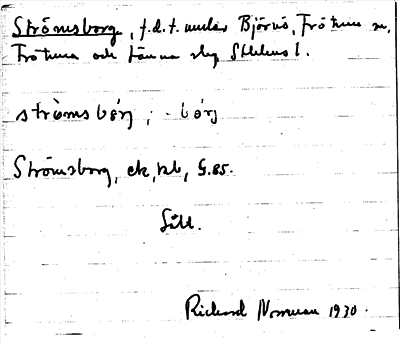 Strömsborg, f.d.t. under Björnö, Frötuna sn,
Frötuna och Länna skg Sthlms l.
strömsbórj, -bórj
Strömsborg, ek, kbl, G.85.
Sitt.
Richard Norrman 1930.